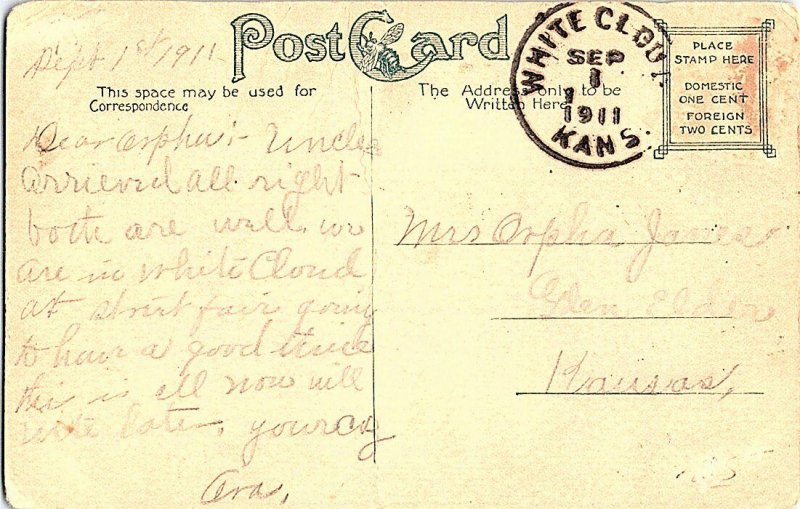 Post Card
Sept 1st 1911
This space may be used for
Correspondence
The Address only to be
Written Here
WHITE CLOU
SEP
1
1911
KANS.
PLACE
STAMP HERE
DOMESTIC
ONE CENT
FOREIGN
TWO CENTS
Dear Orpha:- Uncle
Arrieved all right
both are well. we
are in White Cloud
at street fair going
to have a good time
this is all now will
write later, your
Ora,
Mrs Orpha James
Glen Elder
Kansas,